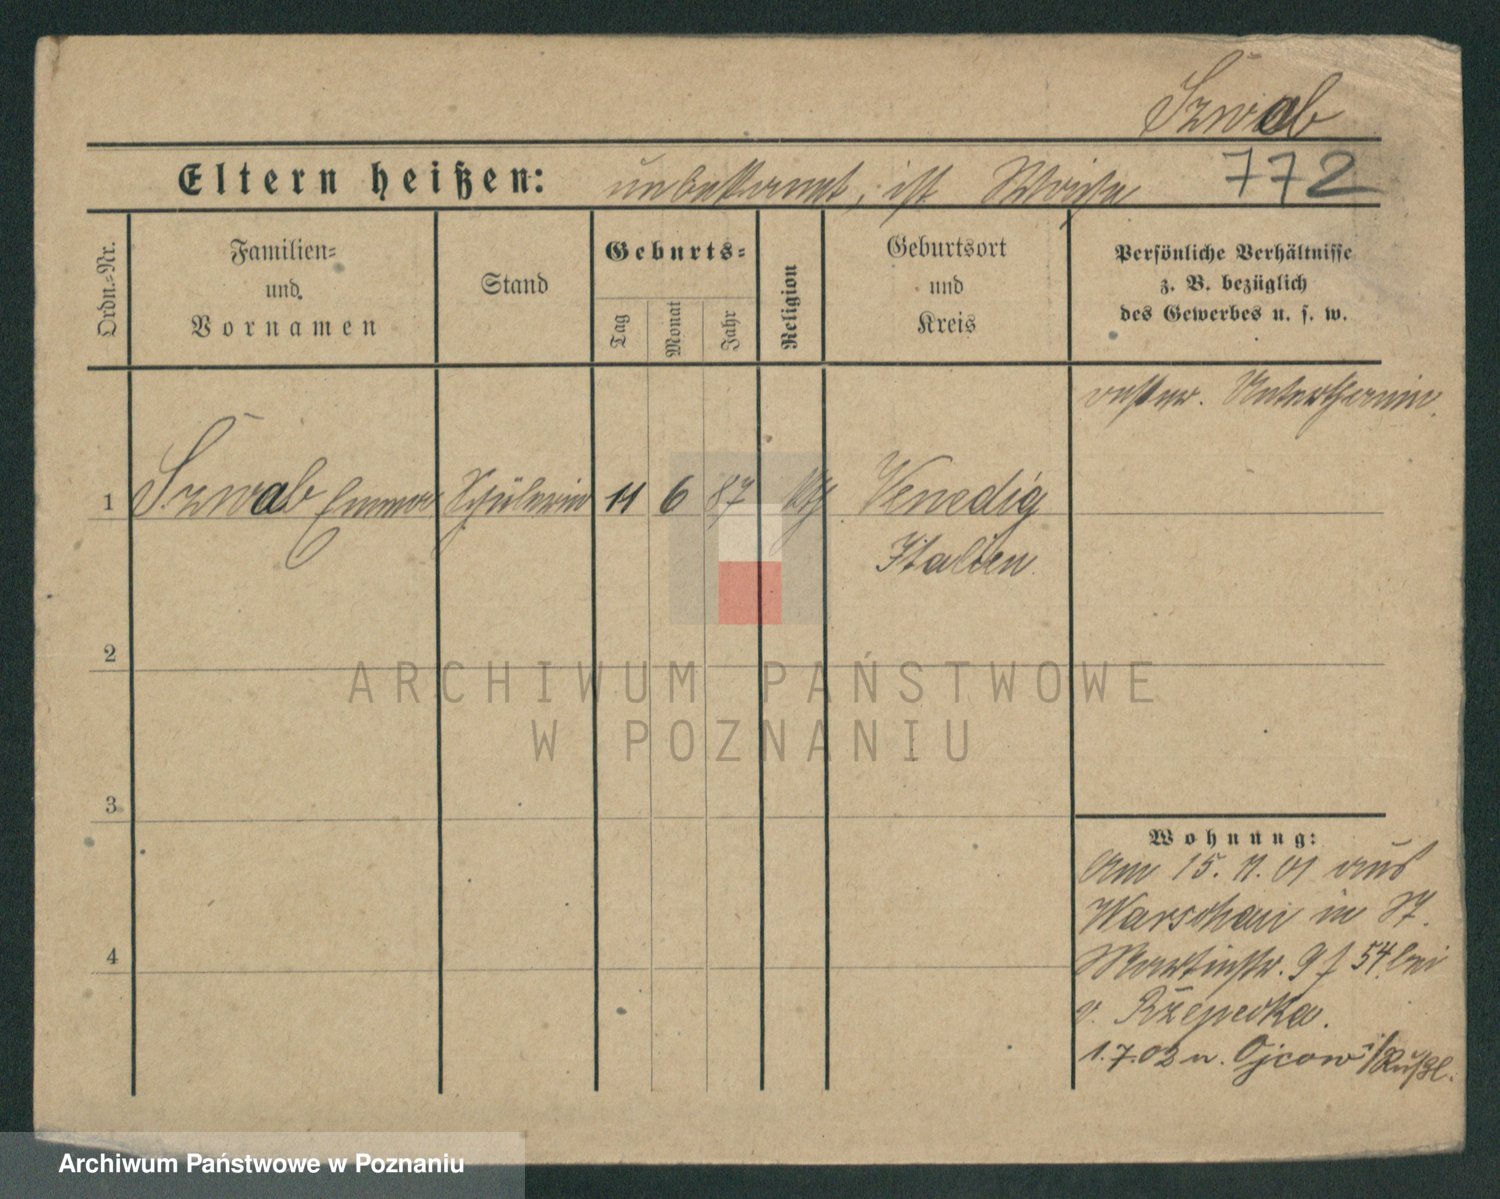 Szwab
Eltern heißen: unbekannt, ist Waise 772
Ordn.-Nr.
Familien-
und
Vornamen
Stand
Geburts-
Tag
Monat
Jahr
Religion
Geburtsort
und
Kreis
Persönliche Verhältnisse
z. B. bezüglich
des Gewerbes u. s. w.
oester. Unterthanin.
1 Szwab Emma Schülerin 11 6 87 kth Venedig
Italien
2
3
4
Wohnung:
Am 15. 11. 01 aus
Warschau in St.
Martinstr. 9 f 54 bei
v. Rzepecka.
1.7.02 n. Ojcow i/Rußl.
ARCHIWUM PAŃSTWOWE
W POZNANIU
Archiwum Państwowe w Poznaniu